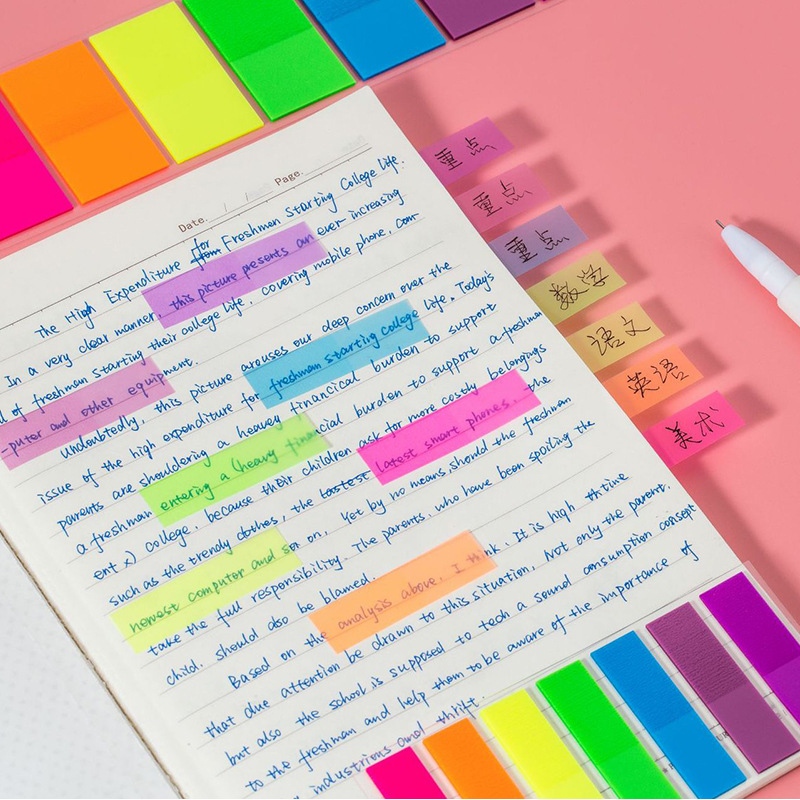 Date.    /    /    Page.
The High Expenditure for Freshmen Starting College Life.
In a very clear manner, this picture presents an ever-increasing
of freshman starting their college life, covering mobile phone, com-
-puter and other equipment.
Undoubtedly, this picture arouses our deep concern over the
issue of the high expenditure for freshman starting college life. Today's
parents are shouldering a heavey financical burden to support
a freshman entering a (heavy financial burden to support a freshman
ent x) college, because their children ask for more costly belongings
such as the trendy clothes, the lastest latest smart phones, the
newest computer and so on, Yet by no means should the freshman
take the full responsibility. The parents, who have been spoiling the
child, should also be blamed.
Based on the analysis above, I think, It is high thtime
that due attention be drawn to this situation, Not only the parent,
but also the school is supposed to tech a sound consumption consept
to the freshman and help them to be aware of the importance of
industrious and thrift.
重点
重点
重点
数学
语文
英语
美术